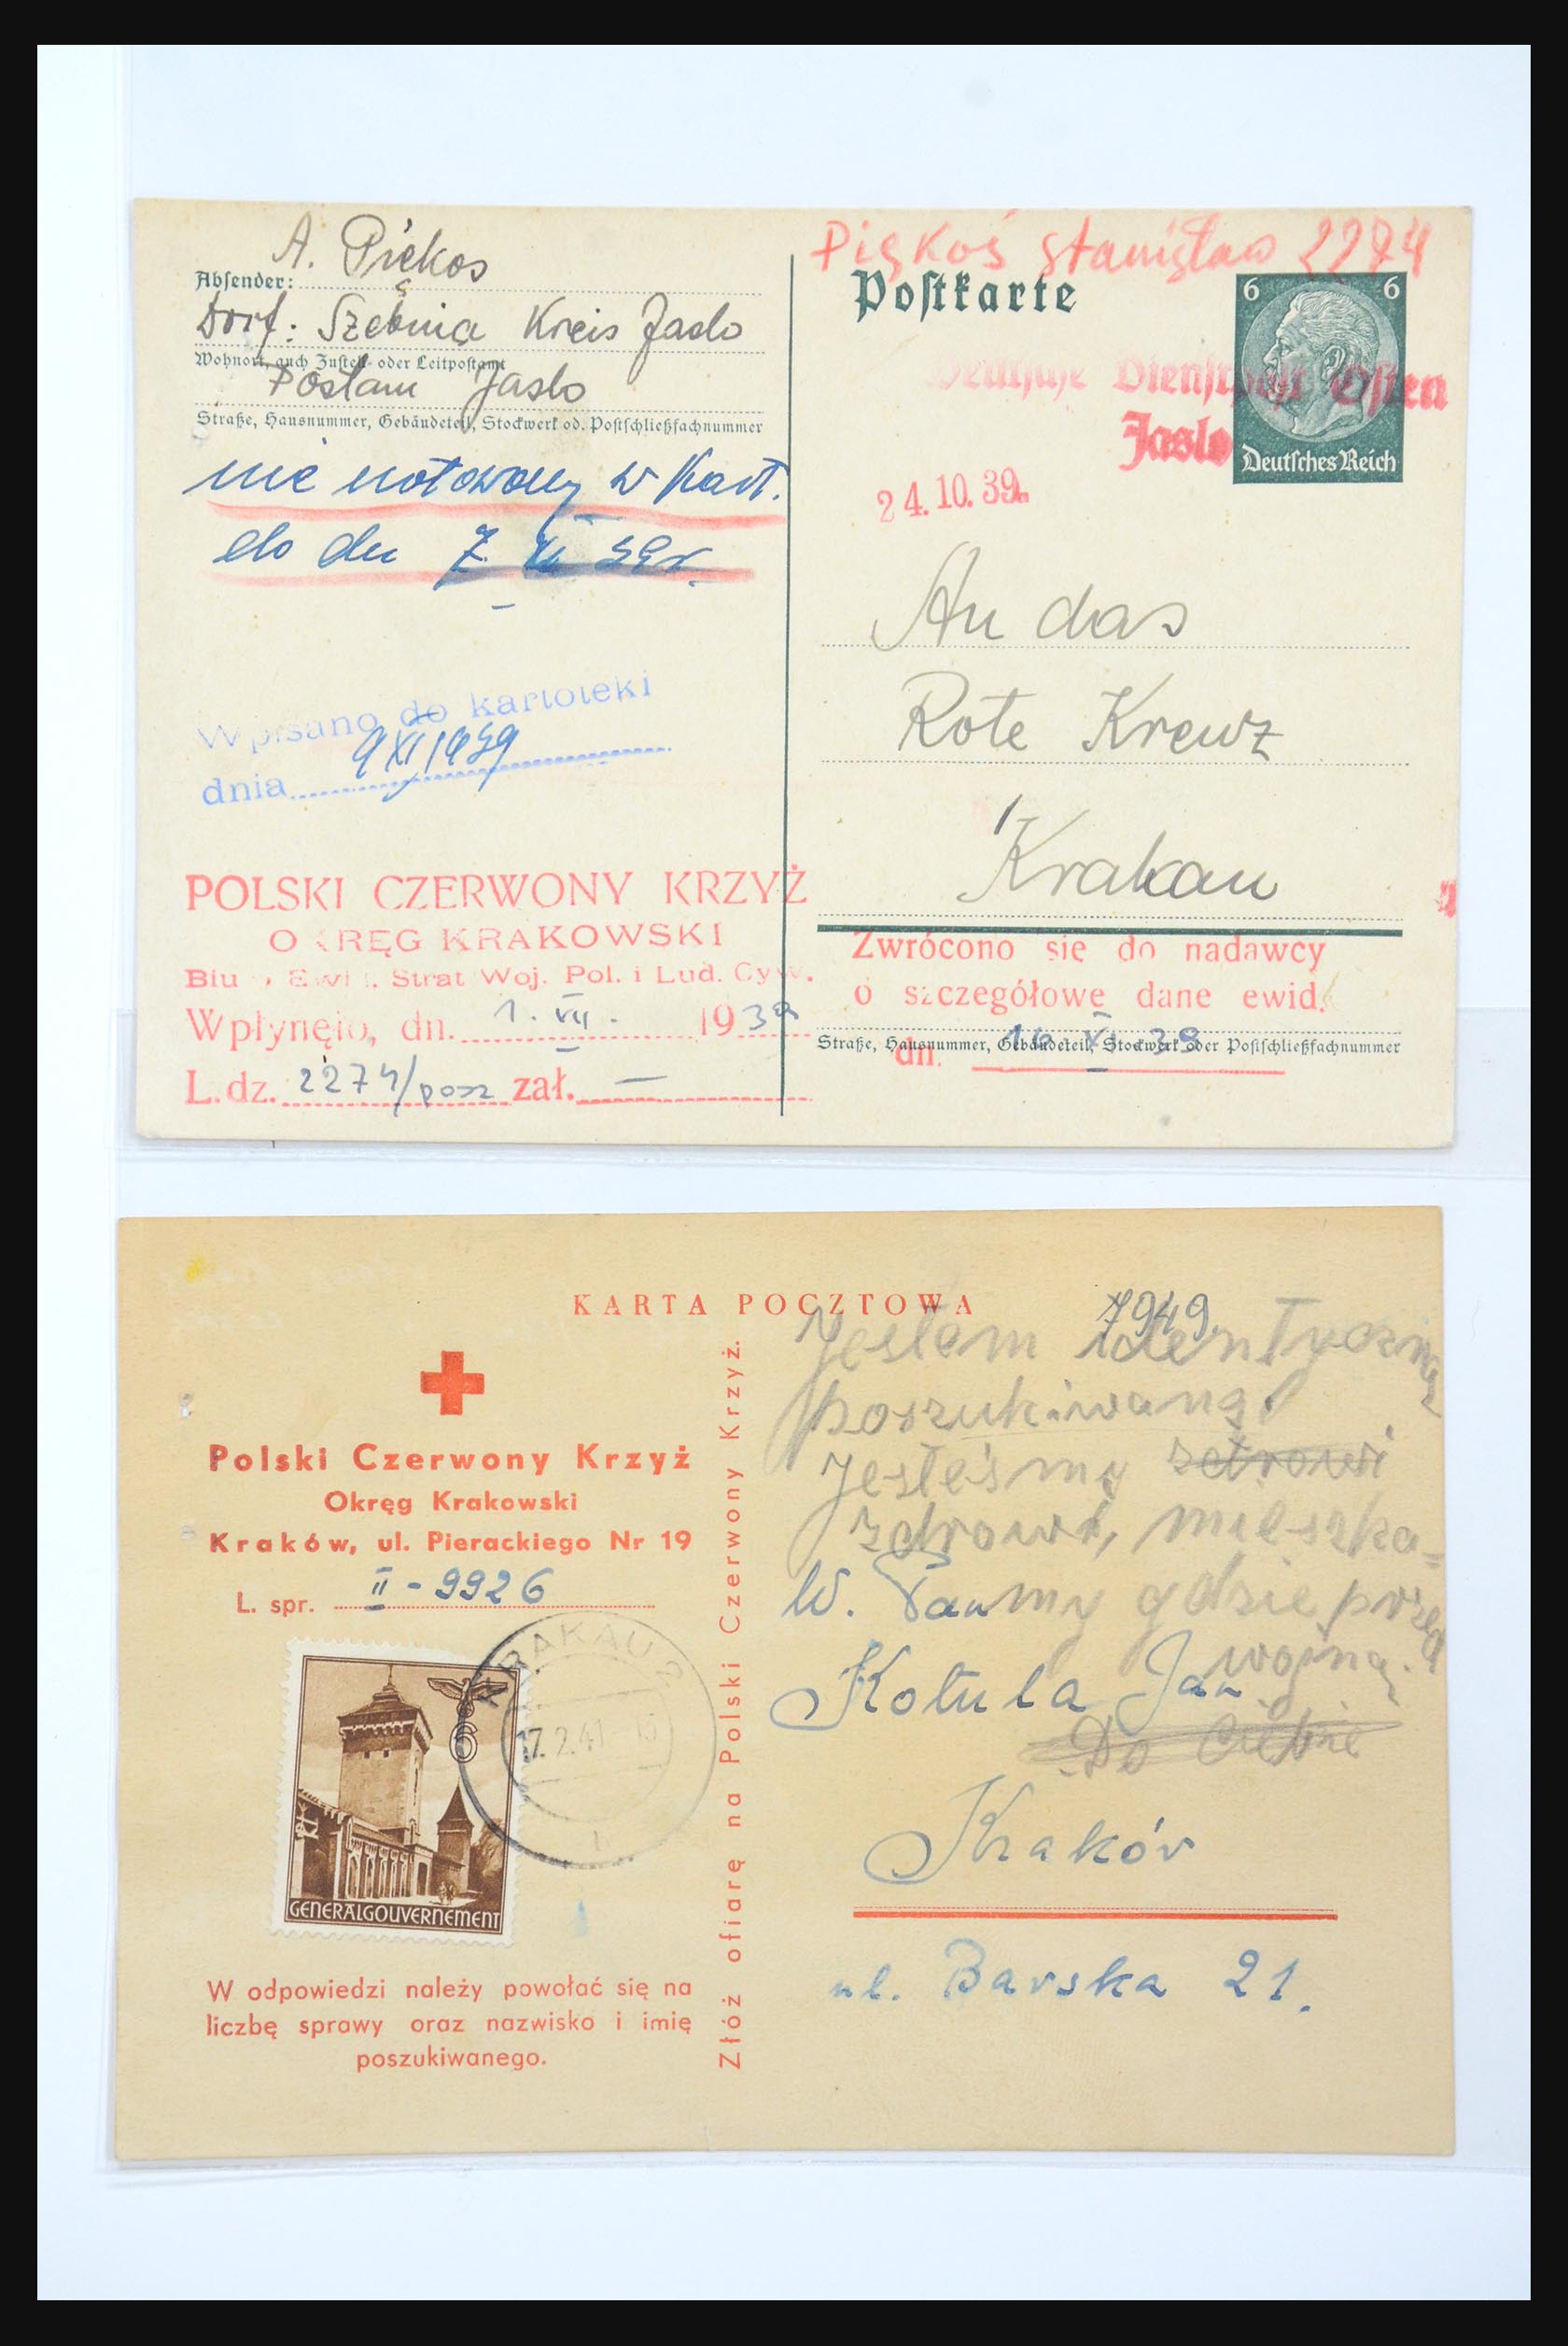 A. Piękos
Absender:
Dorf. Szebnia Kreis Jaslo
Wohnort, auch Zustell- oder Leitpostamt
Postam Jaslo
Straße, Hausnummer, Gebäudeteil, Stockwerk od. Postschließfachnummer
nie notowany w Kart.
do dn 7 XI 39r.
Wpisano do kartoteki
dnia 9 XI 1939
POLSKI CZERWONY KRZYŻ
OKRĘG KRAKOWSKI
Strat Woj. Pol. i Lud. Cyw.
Wpłynęło, dn. 1. VII. 1939
L. dz. 2274/posz zał. —
Piękoś Stanisław 2274
Postkarte
6 6
Deutsche Dienstpost Osten
Jaslo
Deutsches Reich
24.10.39.
An das
Rote Kreuz
Krakau
Zwrócono się do nadawcy
o szczegółowe dane ewid.
dn. XI 39
Straße, Hausnummer, Gebäudeteil, Stockwerk oder Postschließfachnummer
KARTA POCZTOWA
7949
Polski Czerwony Krzyż
Okręg Krakowski
Kraków, ul. Pierackiego Nr 19
L. spr. II - 9926
KRAKAU 2
17.2.41
6
GENERALGOUVERNEMENT
W odpowiedzi należy powołać się na
liczbę sprawy oraz nazwisko i imię
poszukiwanego.
Złóż ofiarę na Polski Czerwony Krzyż.
Jestem identyczny
poszukiwaną.
Jesteśmy zdrowi
zdrowi, mieszka-
my gdzie przed
wojną.
Do Ciebie
W. Pan
Kotula Jan
Kraków
ul. Barska 21.